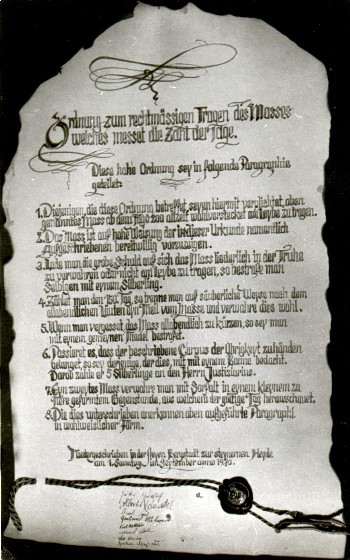 Ordnung zum rechtmässigen Tragen des Masses
welches messet die Zahl der Tage.
Diese hohe Ordnung sey in folgende Paragraphie
geteilet:
1. Diejenigen, die diese Ordnung betreffet, seyen hiermit verpflichtet, oben
genanntes Mass ab dem Tage 200 allzeit wohlverstecket am Leybe zu tragen.
2. Das Mass ist auf hohe Weisung der besitzer Urkunde namentlich
Aufgeschriebenen bereitwillig vorzuzeigen.
3. Lade man die grobe Schuld auf sich das Mass liederlich in der Truhe
zu verwahren oder nicht am Leybe zu tragen, so bestrafe man
Selbigen mit eynem Silberling.
4. Zählet man den Tag, so trenne man auf säuberliche Weyse nach dem
allabendlichen Läuten der vom Masse und verwahre dies wohl.
5. Wenn man vergesset, das Mass allabendlich zu kürzen, so sey man
mit eynem gemeynen Tadel bestrafet.
6. Passieret es, dass der beschriebene Corpus der Obrigkeyt zuhanden
gelanget, so sey derjenige, der dies, mit mit eynem Harme bedacht.
Darob zahle er 5 Silberlinge an den Herrn Justiziarius.
7. Eyn zweytes Mass verwahre man mit Sorgfalt in eynem kleynem zu
geformtem Gegenstande, aus welchem der gültige Tag herausschauet.
8. Die dies unterschrieben anerkennen oben aufgeführte Paragraphi
in wohlweislicher Form.
Niedergeschrieben in der freyen Bergstadt zur steynernen Heyde
am 1. Samstag im September anno 1970.